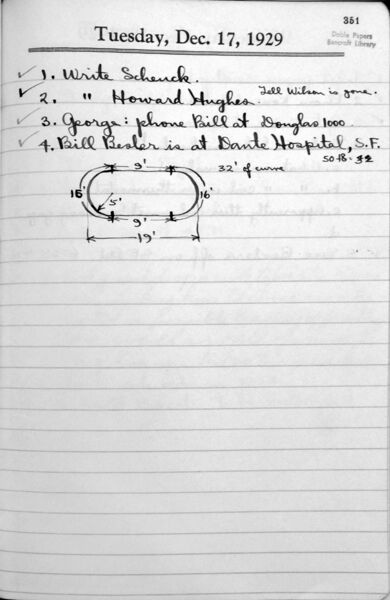 351
Doble Papers
Bancroft Library
Tuesday, Dec. 17, 1929
✓ 1. Write Schenck.
✓ 2. " Howard Hughes. Tell Wilson is gone.
✓ 3. George: phone Bill at Douglas 1000.
✓ 4. Bill Besler is at Dante Hospital, S.F.
9' 32' of curve
16' 5' 16'
9'
19'